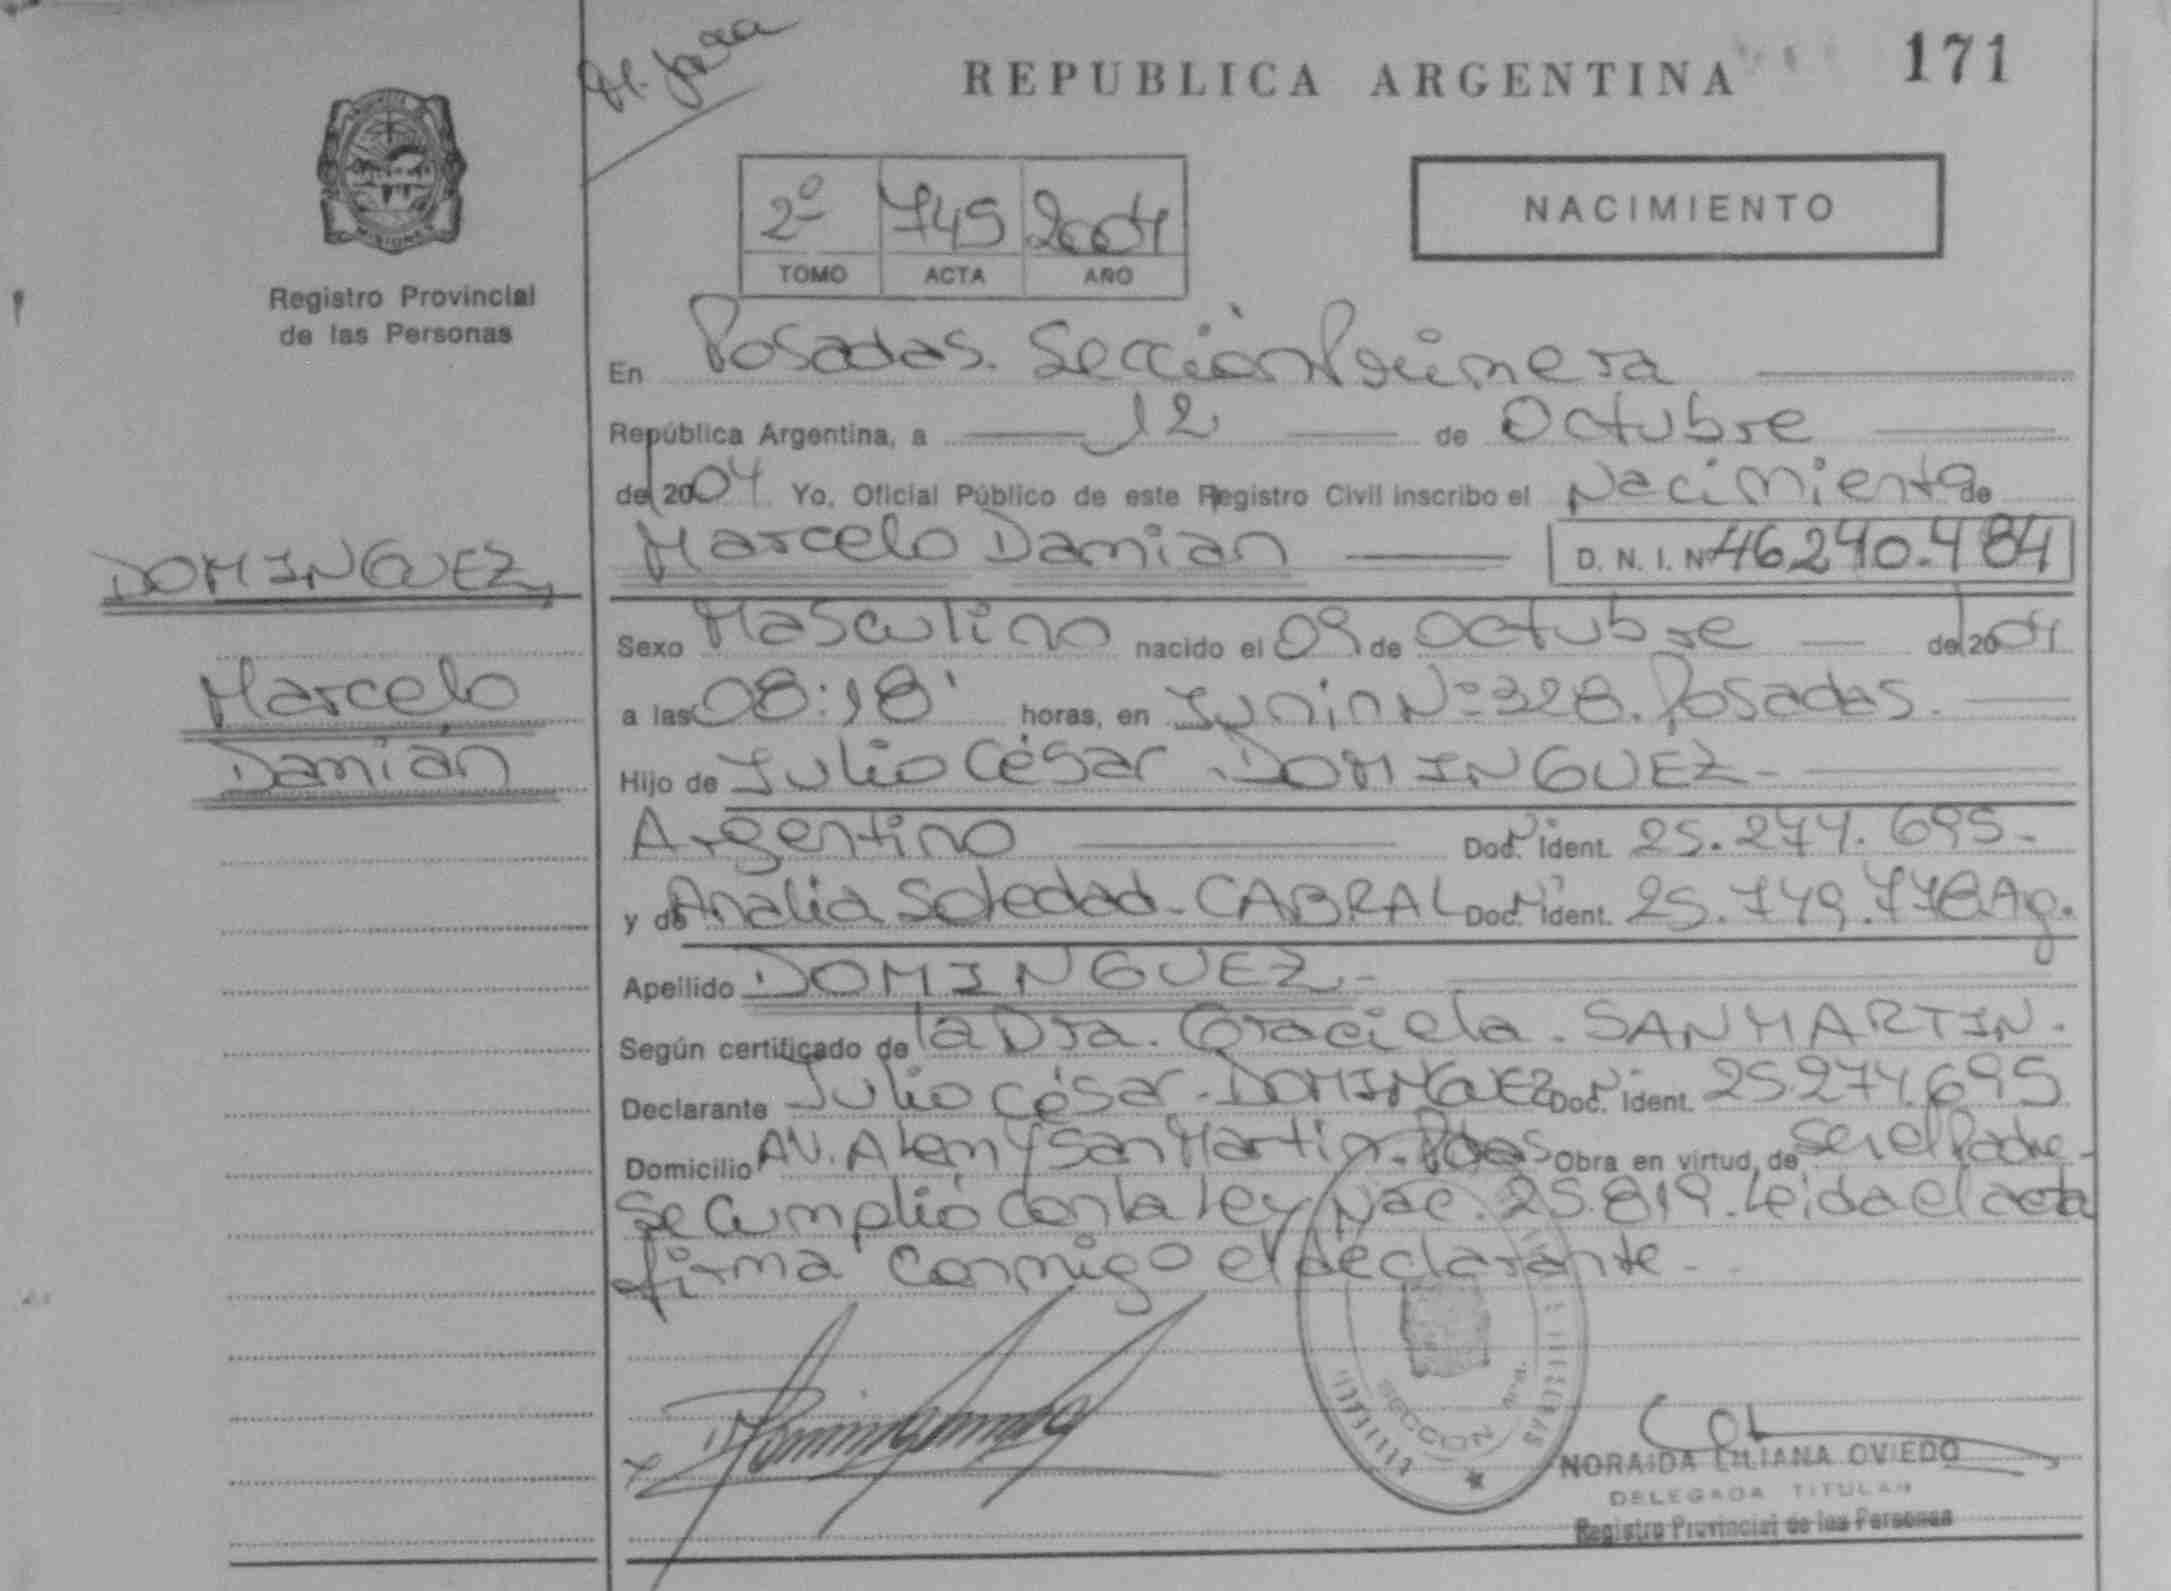 171
REPUBLICA ARGENTINA
NACIMIENTO
2º 745 2004
TOMO ACTA AÑO
MISIONES
Registro Provincial
de las Personas
En Posadas. Sección Primera
República Argentina, a 12 de Octubre
del 2004 Yo, Oficial Público de este Registro Civil inscribo el Nacimiento de
Marcelo Damian D. N. I. Nº 46.240.484
DOMINGUEZ,
Marcelo
Damián
Sexo Masculino nacido el 09 de Octubre del 2004
a las 08:18' horas, en Junin Nº 328. Posadas.
Hijo de Julio César DOMINGUEZ-
Argentino Doc. Ident. 25.274.695-
y de Analia Soledad CABRAL Doc. Ident. 25.749.778 Ag.
Apellido DOMINGUEZ-
Según certificado de la Dra. Graciela SANMARTIN.
Declarante Julio César DOMINGUEZ Doc. Ident. 25.274.695
Domicilio AV. Alem y San Martin. Pdas Obra en virtud de ser el Padre-
Se cumplió con la ley Nac. 25.819. Leida el acta
firma conmigo el declarante-
SECCION
NORAIDA LILIANA OVIEDO
DELEGADA TITULAR
Registro Provincial de las Personas